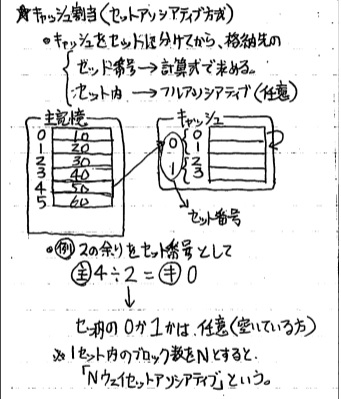 ★キャッシュ割当(セットアソシアティブ方式)
○キャッシュをセットに分けてから、格納先の
セット番号→計算式で求める。
セット内→フルアソシアティブ(任意)
主記憶
0 10
1 20
2 30
3 40
4 50
5 60
キャッシュ
0
1
2
3
0
1
セット番号
○例 2の余りをセット番号として
主4÷2=キ0
↓
セット内の0か1かは、任意(空いている方)
※1セット内のブロック数をNとすると、
「Nウェイセットアソシアティブ」という。